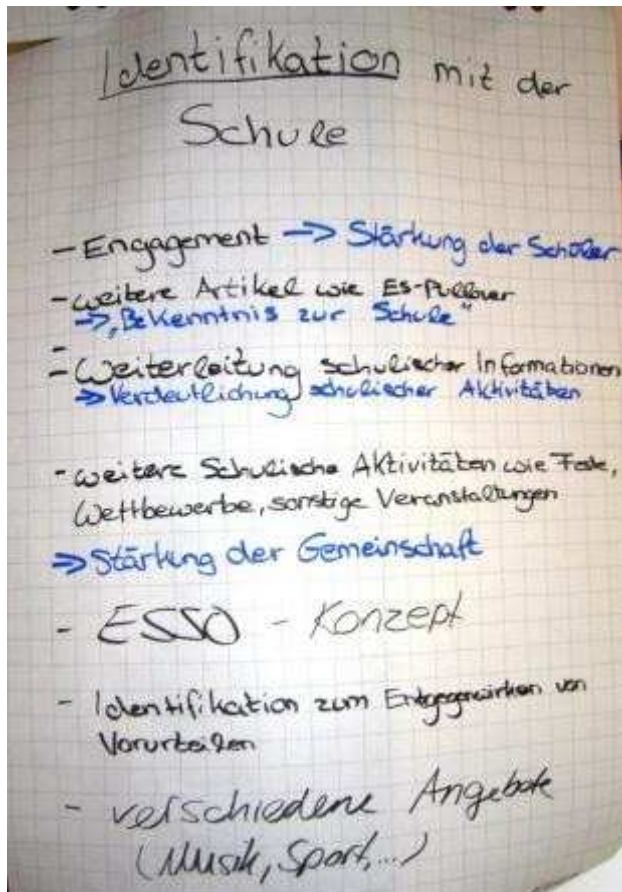 Identifikation mit der
Schule
- Engagement -> Stärkung der Schüler
- weitere Artikel wie ES-Pullover
-> „Bekenntnis zur Schule"
-
- Weiterleitung schulischer Informationen
=> Verdeutlichung schulischer Aktivitäten
- weitere Schulische Aktivitäten wie Feste,
Wettbewerbe, sonstige Veranstaltungen
=> Stärkung der Gemeinschaft
- ESSO - Konzept
- Identifikation zum Entgegenwirken von
Vorurteilen
- verschiedene Angebote
(Musik, Sport,...)